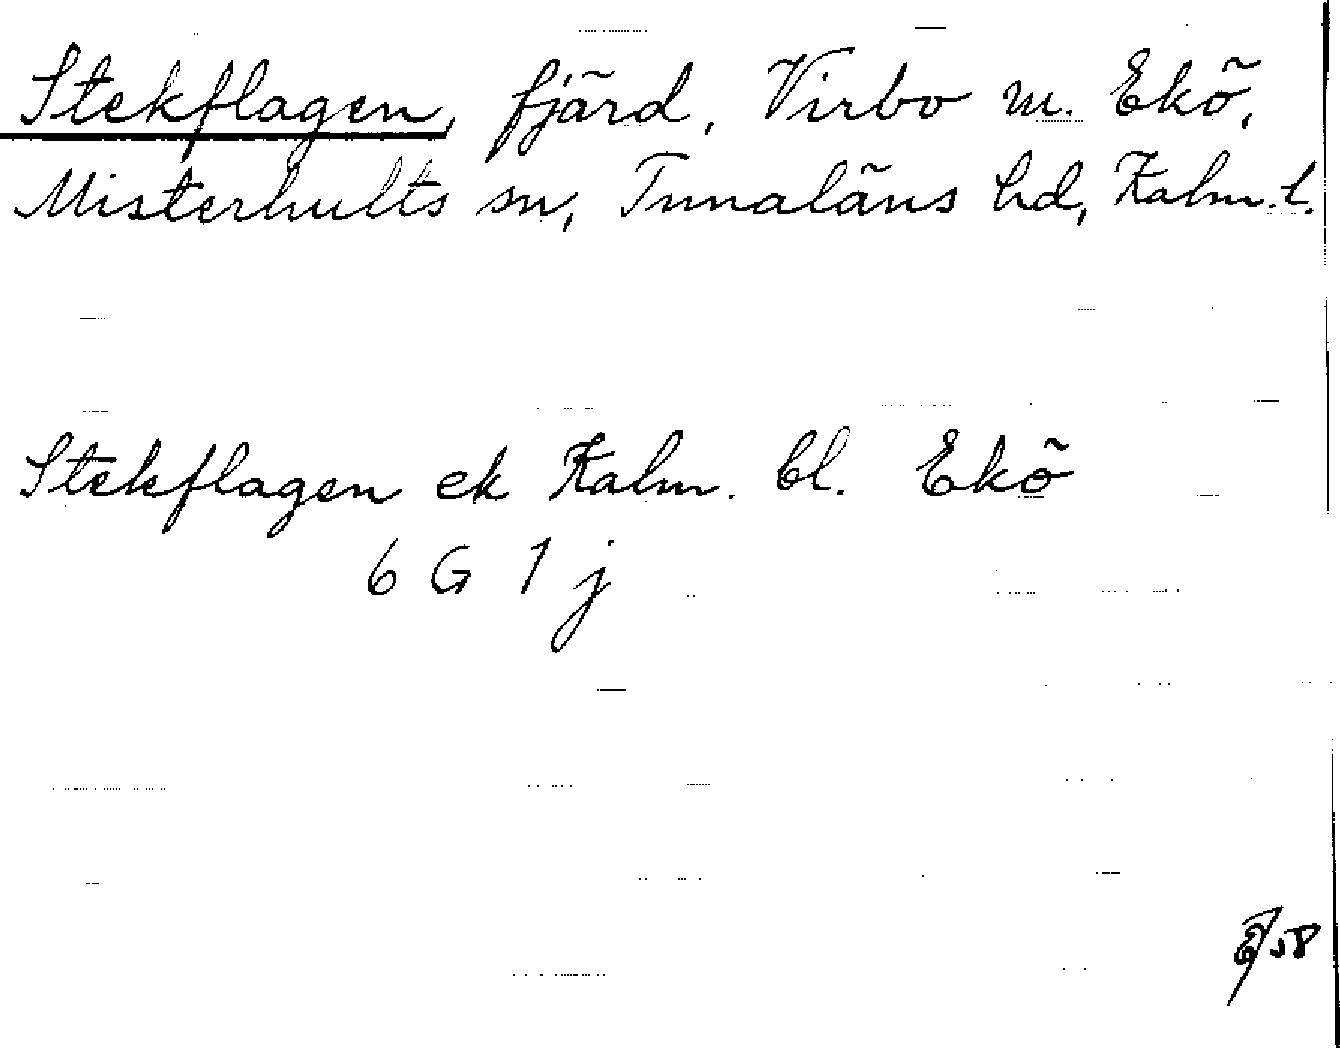 Stekflagen, fjärd, Virbo m. Ekö,
Misterhults sn, Tunaläns hd, Kalm. l.
Stekflagen ek Kalm. bl. Ekö
6 G 1 j
58